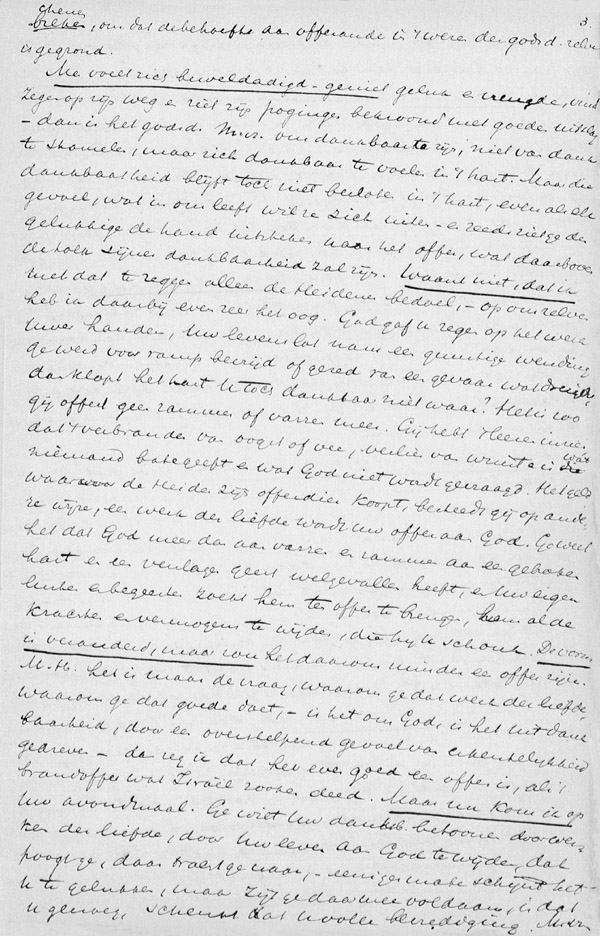 3.
ghener
breken, om dat de behoefte aan offerande in 't wezen der godsd. zelve
is gegrond.
Me voelt zich beweldadigd - geniet geluk en vreugde, vind
zegen op zijn weg en ziet zijn pogingen bekroond met goeden uitslag
- dan is het godsd. M.v. om dankbaar te zijn, niet van dank
te stamelen, maar zich dankbaar te voelen in 't hart. Maar die
dankbaarheid blijft toch niet besloten in 't hart, even als elk
gevoel, wat in ons leeft wil ze zich uiten - en reeds ziet ge den
gelukkige de hand uitsteken naar het offer, wat daarboven
de tolk zijner dankbaarheid zal zijn. Waant niet, dat ik
met dat te zeggen alleen de Heidenen bedoel, - op ons zelven
heb ik daarbij even zeer het oog. God gaf u zegen op het werk
uwer handen, Uw levenslot nam een gunstige wending
ge werd voor ramp bevrijd of gered van een gevaar wat dreigde
dan klopt het hart U toch dankbaar niet waar? Het is zoo
gij offert geen rammen of varren meer. Gij hebt
dat 't verbranden van oogst of vee, verlies van is wat
niemand bate geeft en wat God niet wordt gevraagd. Het geld
waarvoor de Heiden zijn offerdier koopt, besteedt gij op ande-
re wijze, een werk der liefde wordt uw offer aan God. Ge weet
het dat God meer dan aan varren en rammen aan een gebroken
hart en een verslagen geest welgevallen heeft, en Uw eigen
lusten en begeerten zocht hem ten offer te brengen, hem al de
krachten en vermogens te wijden, die hij U schonk. De vorm
is veranderd, maar zou het daarom minder een offer zijn.
M. H. het is maar de vraag, waarom ge dat werk der liefde,
waarom ge dat goede doet, - is het om God, is het uit dank
baarheid, door een overstelpend gevoel van erkentelijkheid
gedreven - dan zeg ik dat het even goed een offer is, als 't
brandoffer wat Israël rooken deed. Maar nu kom ik op
Uw avondmaal. Ge wilt Uw dankb. betoonen door wer-
ken der liefde, door Uw leven aan God te wijden, dat
poogt ge, daar tracht ge naar, - eenigermate schijnt het
U te gelukken, maar zijt ge daarmee voldaan, is dat
U genoeg, schenkt dat U volle bevrediging